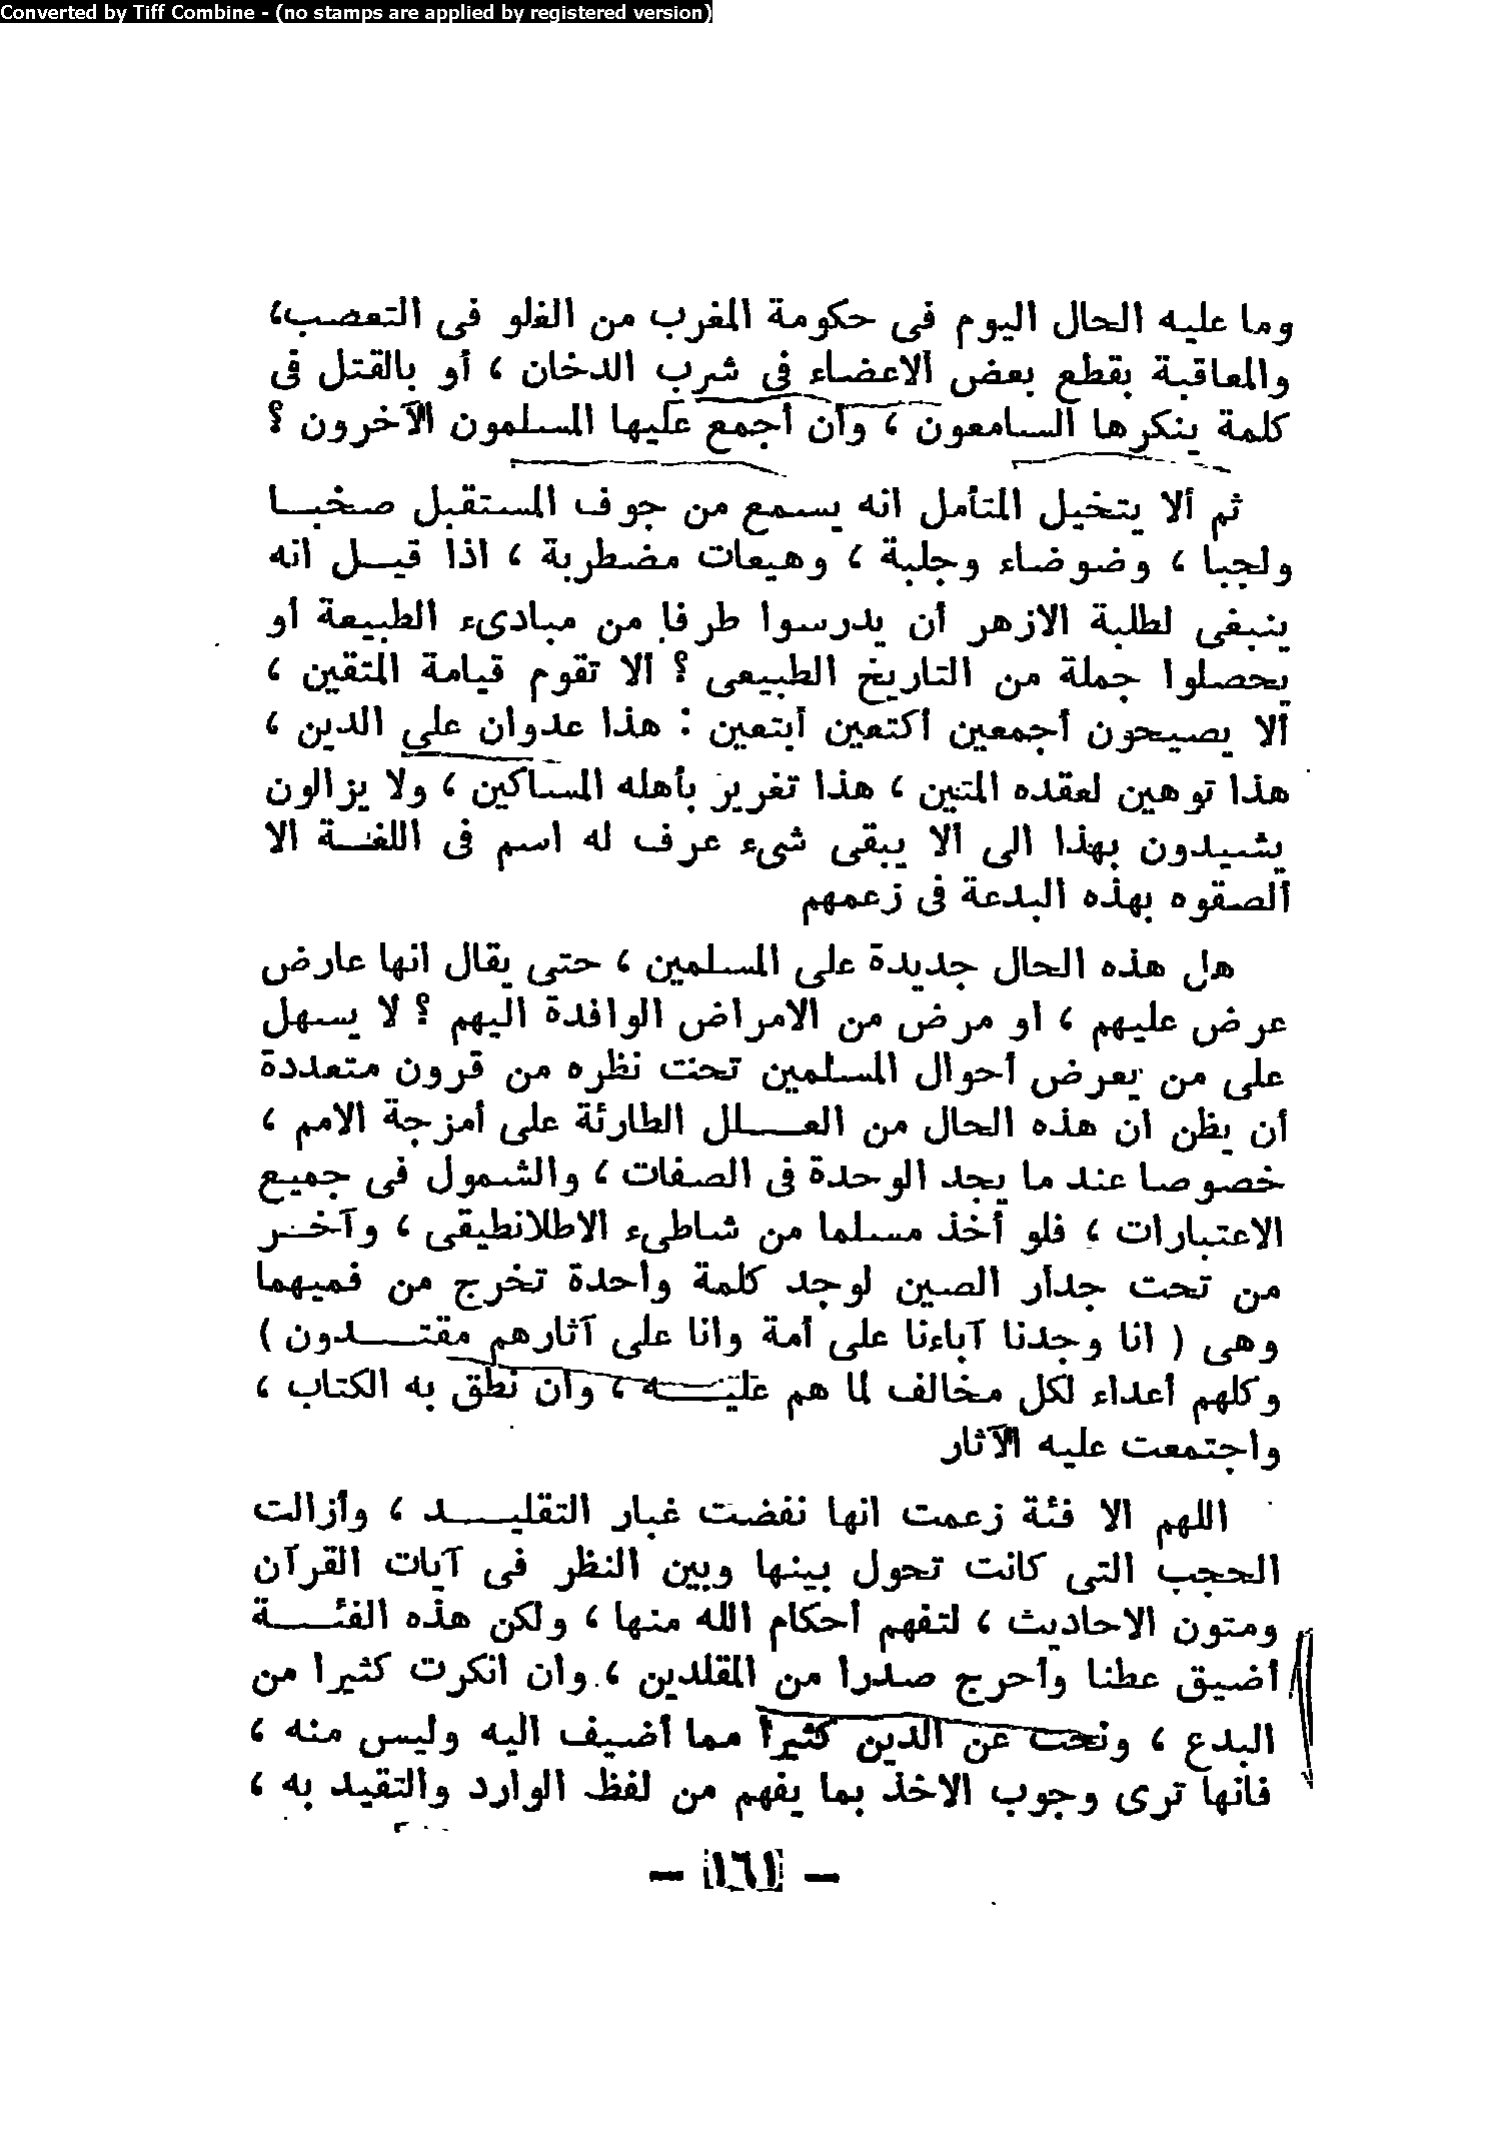 Converted by Tiff Combine - (no stamps are applied by registered version)
وما عليه الحال اليوم فى حكومة المغرب من الغلو فى التعصب،
والمعاقبة بقطع بعض الاعضاء فى شرب الدخان ، أو بالقتل فى
كلمة ينكرها السامعون ، وان أجمع عليها المسلمون الآخرون ؟
ثم ألا يتخيل المتأمل انه يسمع من جوف المستقبل صخبا
ولجبا ، وضوضاء وجلبة ، وهيعات مضطربة ، اذا قيل انه
ينبغى لطلبة الازهر أن يدرسوا طرفا من مبادىء الطبيعة أو
يحصلوا جملة من التاريخ الطبيعى ؟ ألا تقوم قيامة المتقين ،
ألا يصيحون أجمعين أكتعين أبتعين : هذا عدوان على الدين ،
هذا توهين لعقده المتين ، هذا تغرير بأهله المساكين ، ولا يزالون
يشيدون بهذا الى ألا يبقى شىء عرف له اسم فى اللغة الا
ألصقوه بهذه البدعة فى زعمهم
هل هذه الحال جديدة على المسلمين ، حتى يقال انها عارض
عرض عليهم ، أو مرض من الامراض الوافدة اليهم ؟ لا يسهل
على من يعرض أحوال المسلمين تحت نظره من قرون متعددة
أن يظن أن هذه الحال من العلل الطارئة على أمزجة الامم ،
خصوصا عند ما يجد الوحدة فى الصفات ، والشمول فى جميع
الاعتبارات ، فلو أخذ مسلما من شاطىء الاطلانطيقى ، وآخر
من تحت جدار الصين لوجد كلمة واحدة تخرج من فميهما
وهى ( انا وجدنا آباءنا على أمة وانا على آثارهم مقتدون )
وكلهم أعداء لكل مخالف لما هم عليه ، وان نطق به الكتاب ،
واجتمعت عليه الآثار
اللهم الا فئة زعمت انها نفضت غبار التقليد ، وأزالت
الحجب التى كانت تحول بينها وبين النظر فى آيات القرآن
ومتون الاحاديث ، لتفهم أحكام الله منها ، ولكن هذه الفئة
أضيق عطنا وأحرج صدرا من المقلدين ، وان انكرت كثيرا من
البدع ، ونحت عن الدين كثيرا مما أضيف اليه وليس منه ،
فانها ترى وجوب الاخذ بما يفهم من لفظ الوارد والتقيد به ،
— ١٦١ —